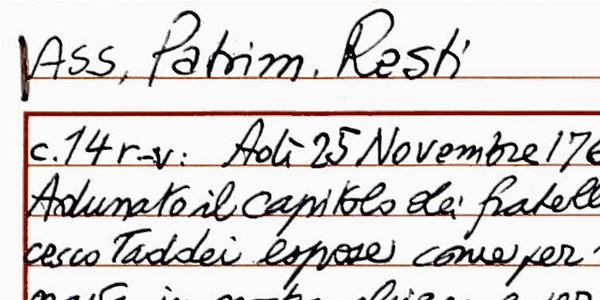 Ass. Patrim. Resti
c. 14 r-v: Adì 25 Novembre 176
Adunato il capitolo dei fratell
cesco Taddei espose come per